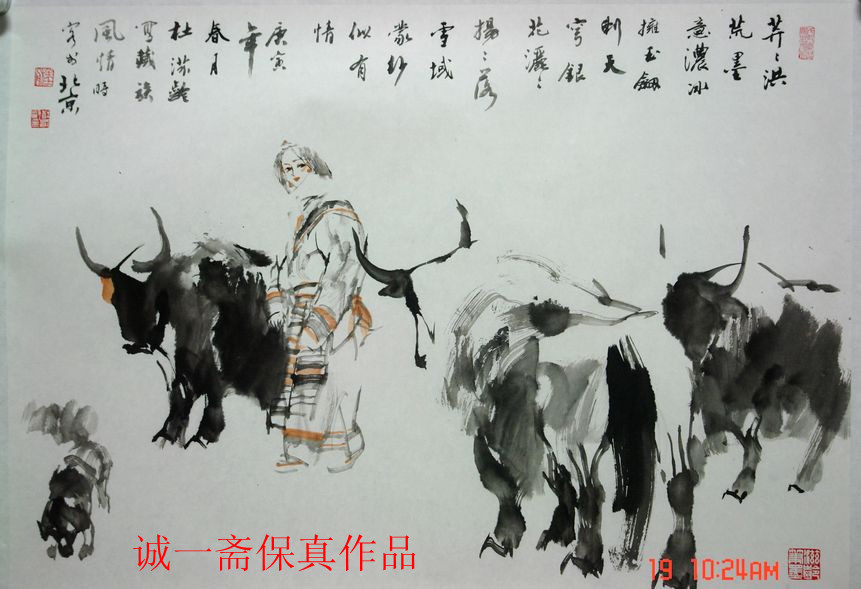 莽〻洪
荒墨
意濃冰
擁玉劍
刺天
穹銀
花灑〻
揚〻落
雪域
蒙紗
似有
情
庚寅
年
春月
杜滋齡
寫藏族
風情時
客於北京
诚一斋保真作品
19 10:24AM